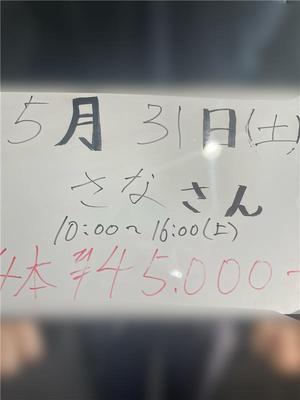 5月 31日(土)
さな さん
10:00~16:00(土)
本 ¥45.000